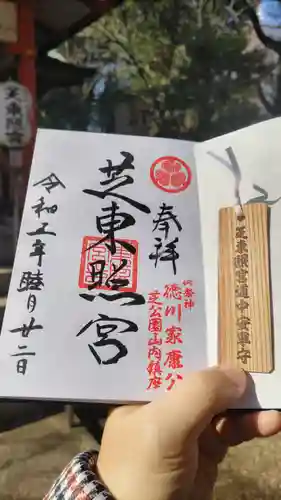 奉拝
御祭神
徳川家康公
芝公園山内鎮座
芝東照宮
令和五年睦月廿二日
芝東照宮道中安全守